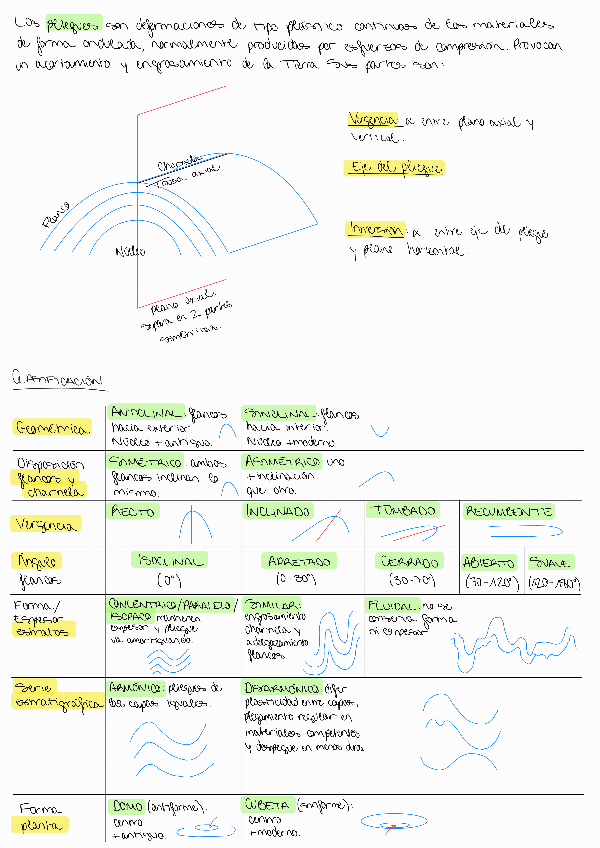 Los pliegues son deformaciones de tipo plástico continuas de los materiales
de forma ondulada, normalmente producidas por esfuerzos de compresión. Provocan
un acortamiento y engrosamiento de la Tierra. Sus partes son:
Vergencia α entre plano axial y
vertical.
Charnela
Traza axial
Eje del pliegue
Flanco
Núcleo
Inmersión: α entre eje de pliegue
y plano horizontal.
Plano axial
separa en 2 partes
simétricas.
CLASIFICACIÓN:
Geométrica
ANTICLINAL: flancos
hacia exterior.
Núcleo + antiguo.
SINCLINAL: flancos
hacia interior.
Núcleo + moderno
Disposición
flancos y
charnela
SIMÉTRICO: ambos
flancos inclinan lo
mismo.
ASIMÉTRICO: uno
+ inclinación
que otro.
Vergencia
RECTO
INCLINADO
TUMBADO
RECUMBENTE
Ángulo
flancos
ISOCLINAL
(0°)
APRETADO
(0-30°)
CERRADO
(30-70°)
ABIERTO
(70-120°)
SUAVE
(120-180°)
Forma/
Espesor
estratos
CONCÉNTRICO/PARALELO/
ISÓPACO: mantienen
espesor y pliegue
va amortiguando.
SIMILAR:
engrosamiento
charnela y
adelgazamiento
flancos.
FLUIDAL: no se
conserva forma
ni espesor
Serie
estratigráfica
ARMÓNICO: pliegues de
las capas iguales.
DISARMÓNICO: difer
plasticidad entre capas,
plegamiento regular en
materiales competentes
y despegue en menos duros
Forma
planta
DOMO (antiforme):
centro
+ antiguo.
CUBETA (sinforme):
centro
+ moderno.